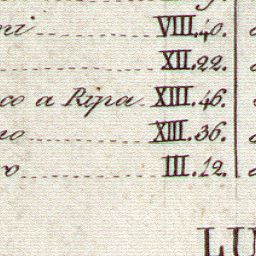 ni VIII.40.
XII.22.
co a Ripa XIII.46.
no XIII.36.
o III.12.
LU